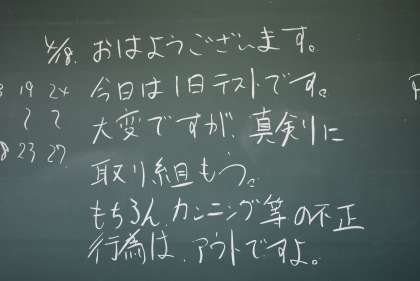 4/8. おはようございます。
19 24 今日は1日テストです。
大変ですが、真剣に
23 27 取り組もう。
もちろん、カンニング等の不正
行為は、アウトですよ。